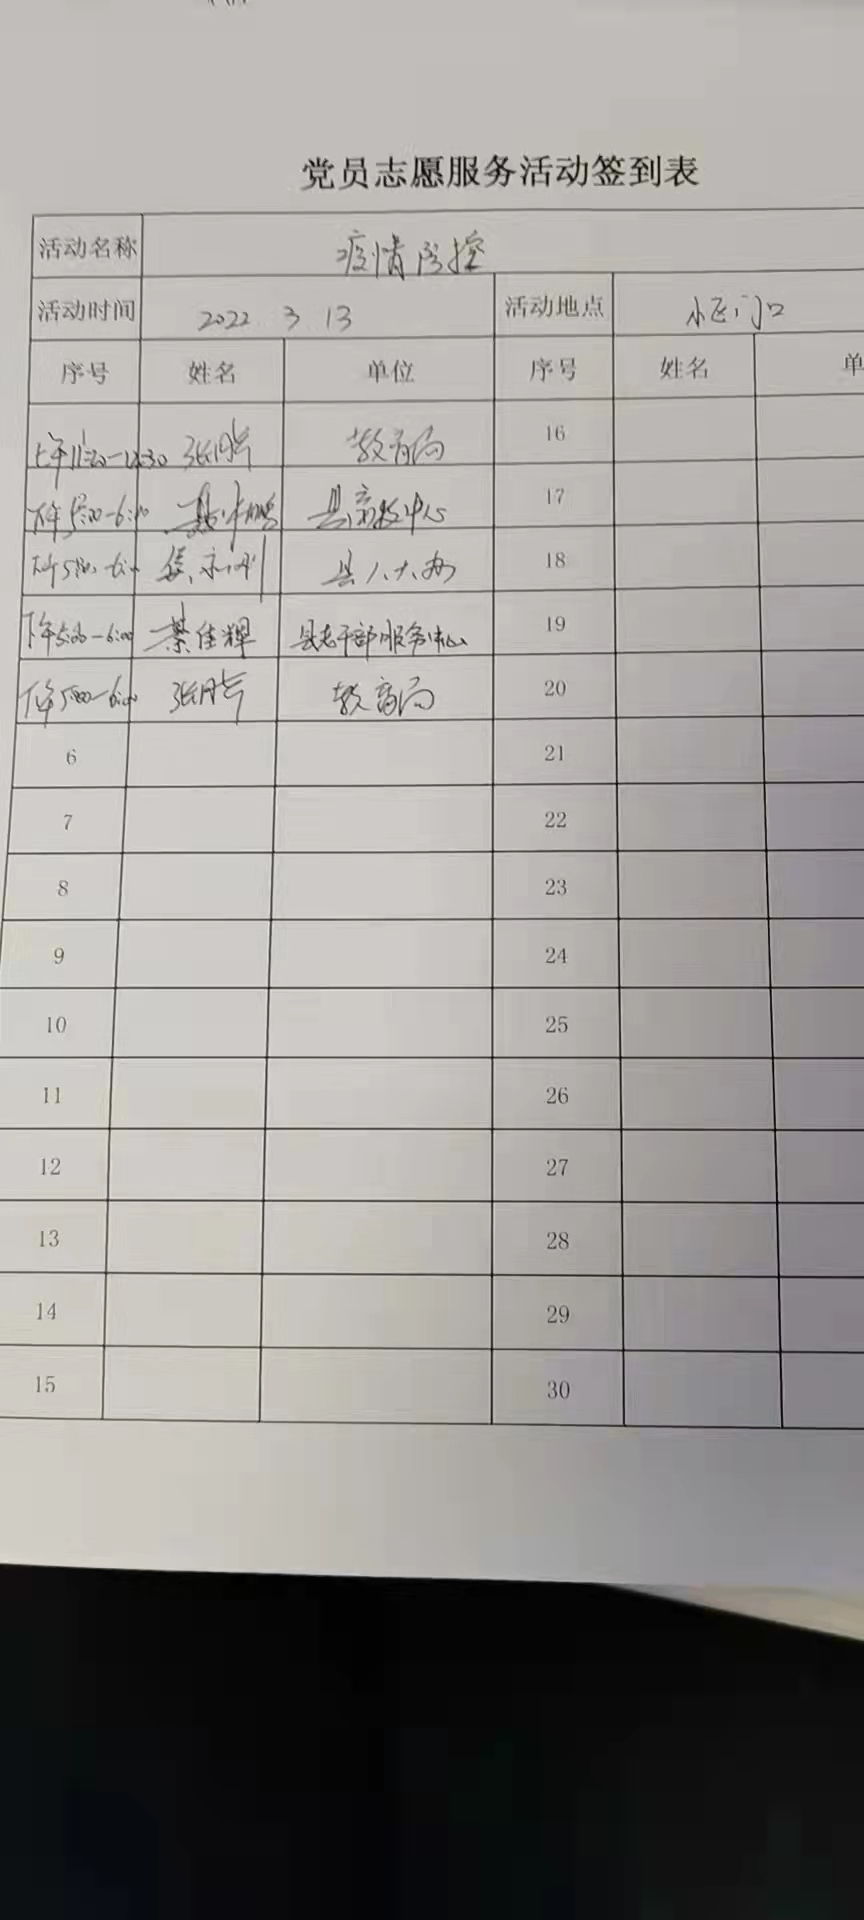 党员志愿服务活动签到表
活动名称 疫情防控
活动时间 2022 3 13 活动地点 小区门口
序号 姓名 单位 序号 姓名 单
上午11:20-12:30 教育局 16
下午5:00-6:00 17
下午5:00-6:00 县人大办 18
下午5:00-6:00 蔡佳辉 县老干部服务中心 19
下午5:00-6:00 教育局 20
6 21
7 22
8 23
9 24
10 25
11 26
12 27
13 28
14 29
15 30